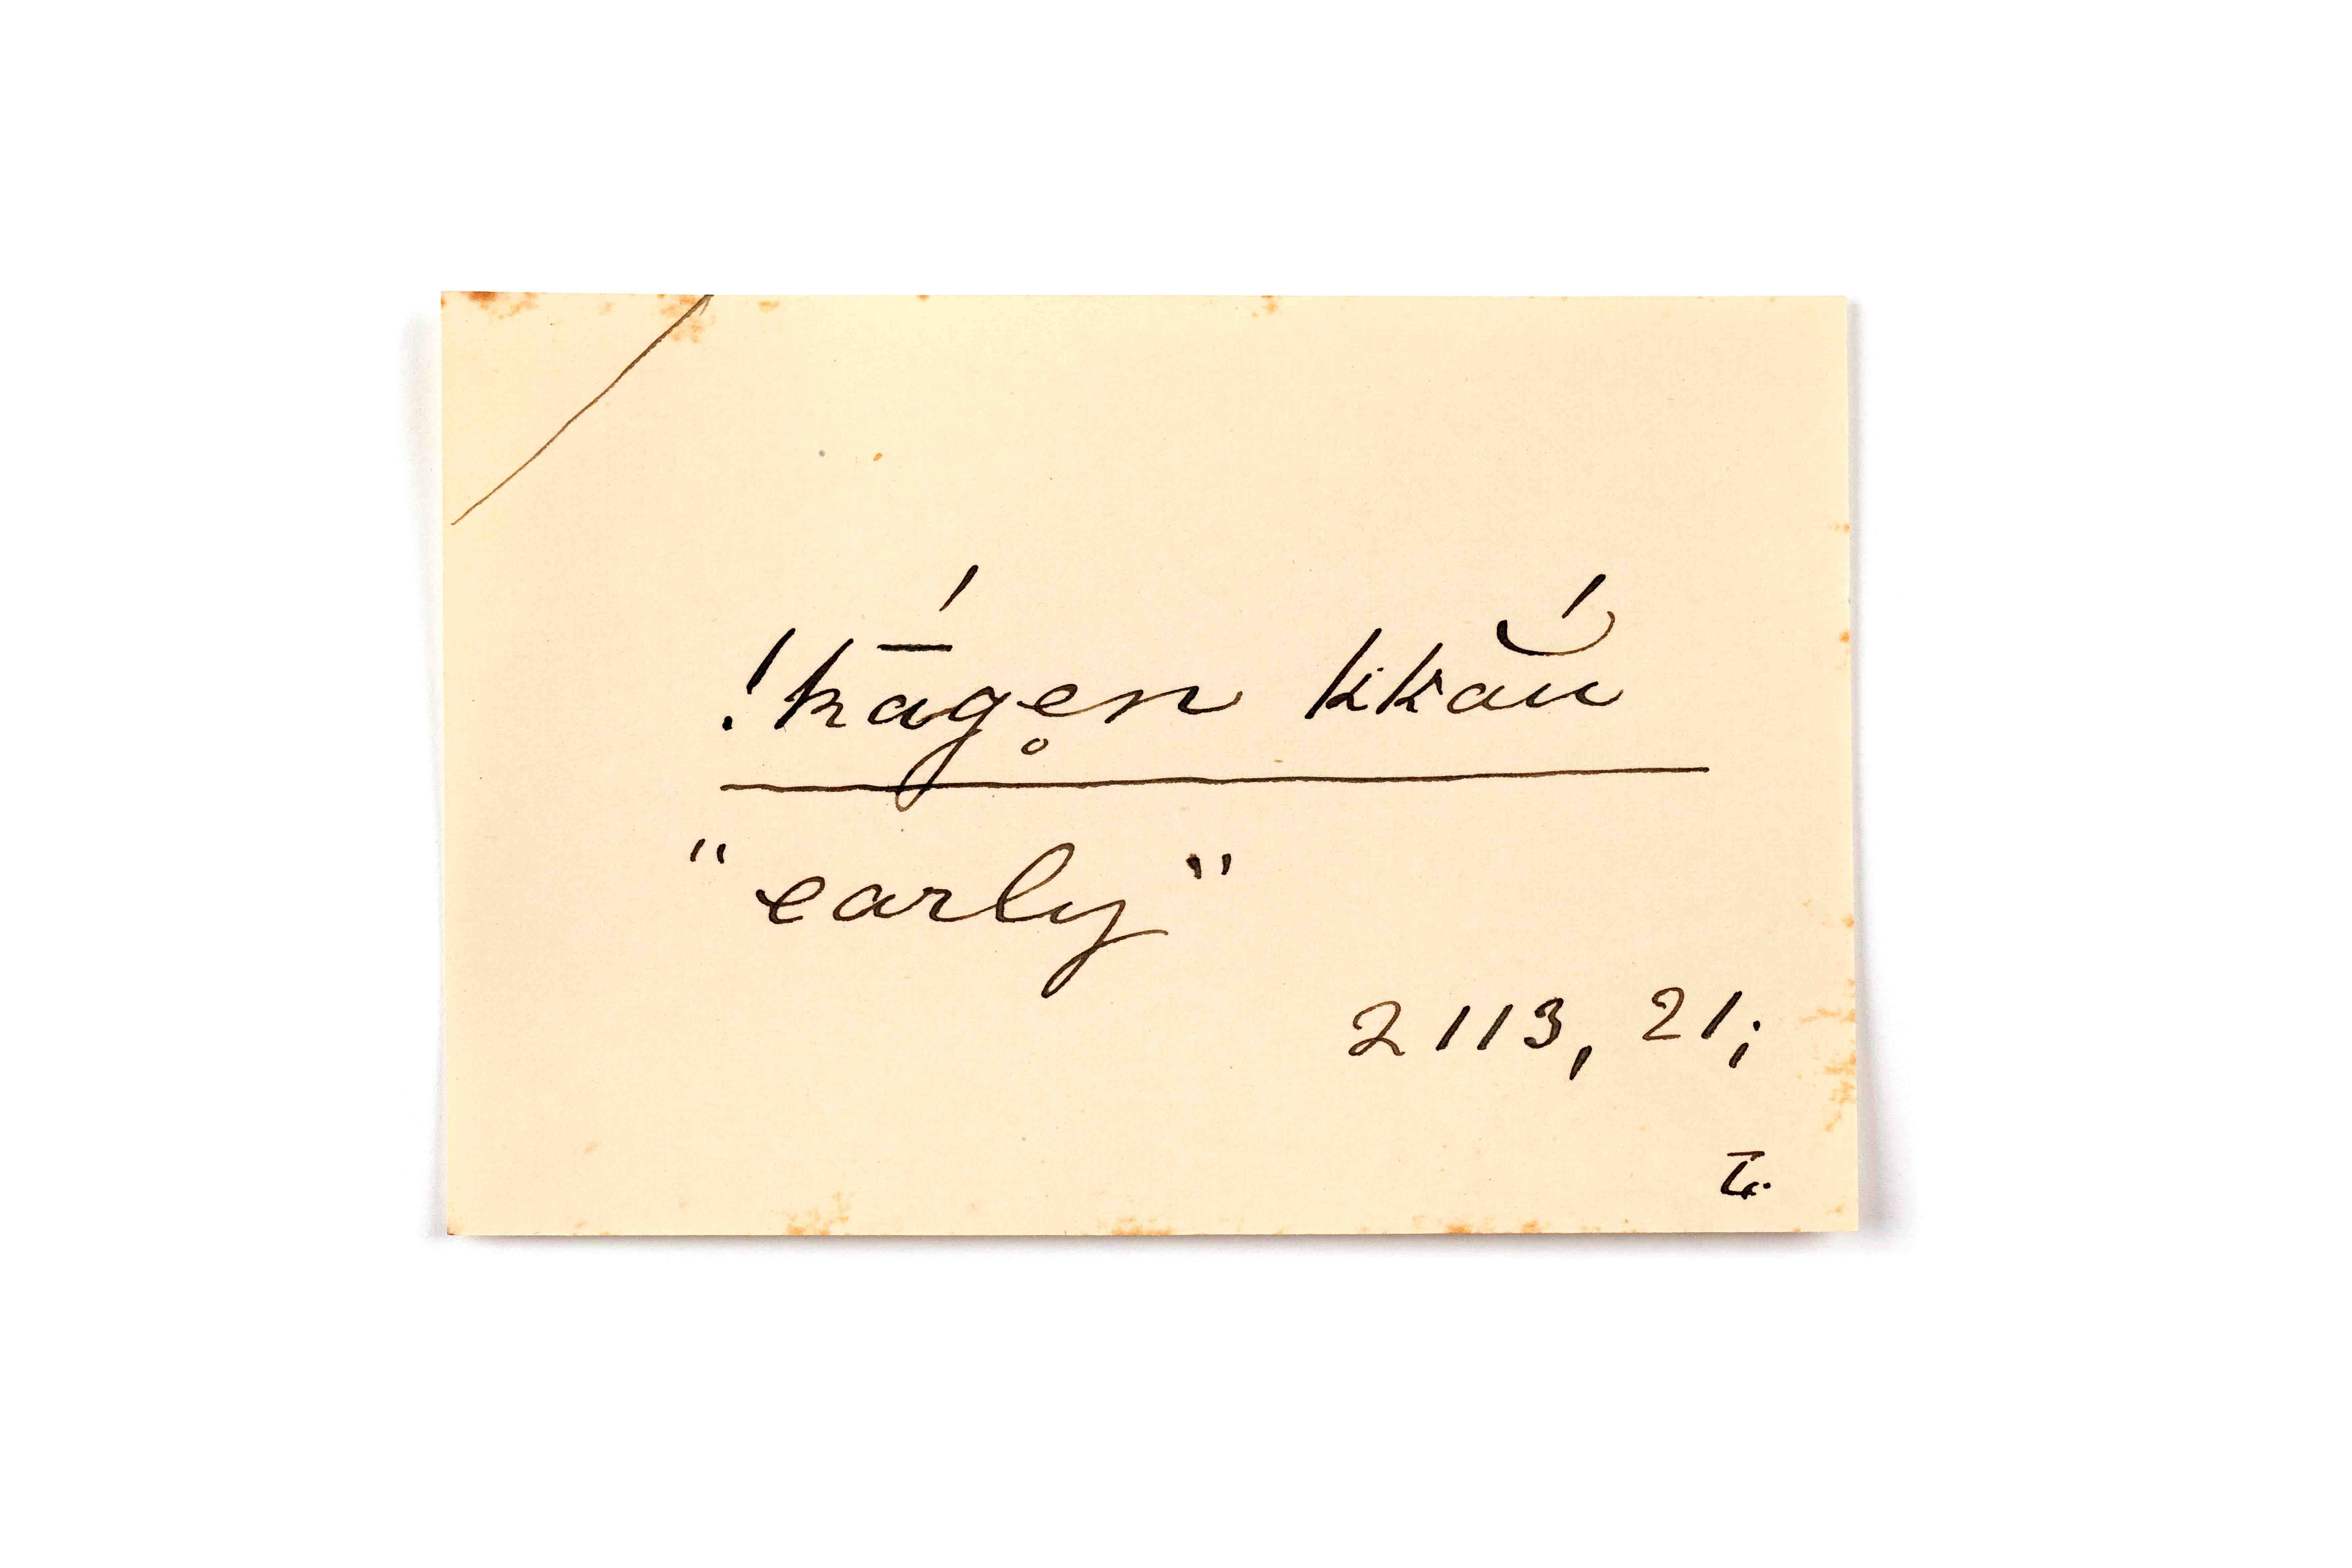 !kā́ge̥n kkắu
"early"
2113, 21;